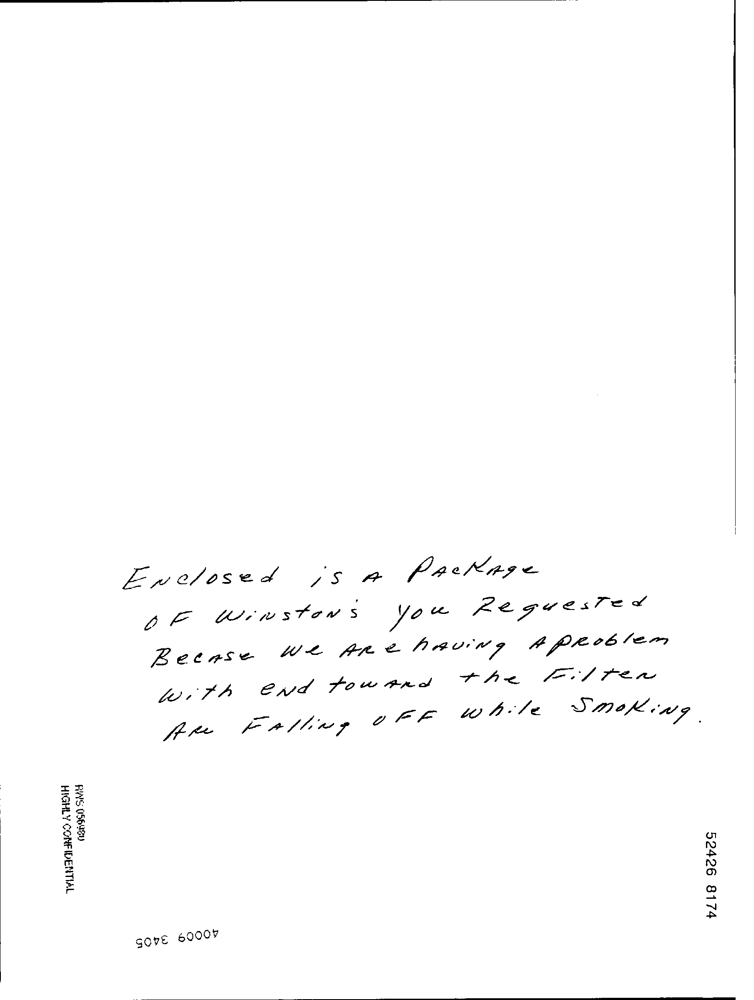 Enclosed is A PAcKAge
OF WiNstoN's you Requested
BecAse we ARe hAviNg A pRoblem
with end towARd the Filter
ARe FAlliNg OFF while SmoKiNg.
HIGHLY CONFIDENTIAL
52426 8174
40009 3405